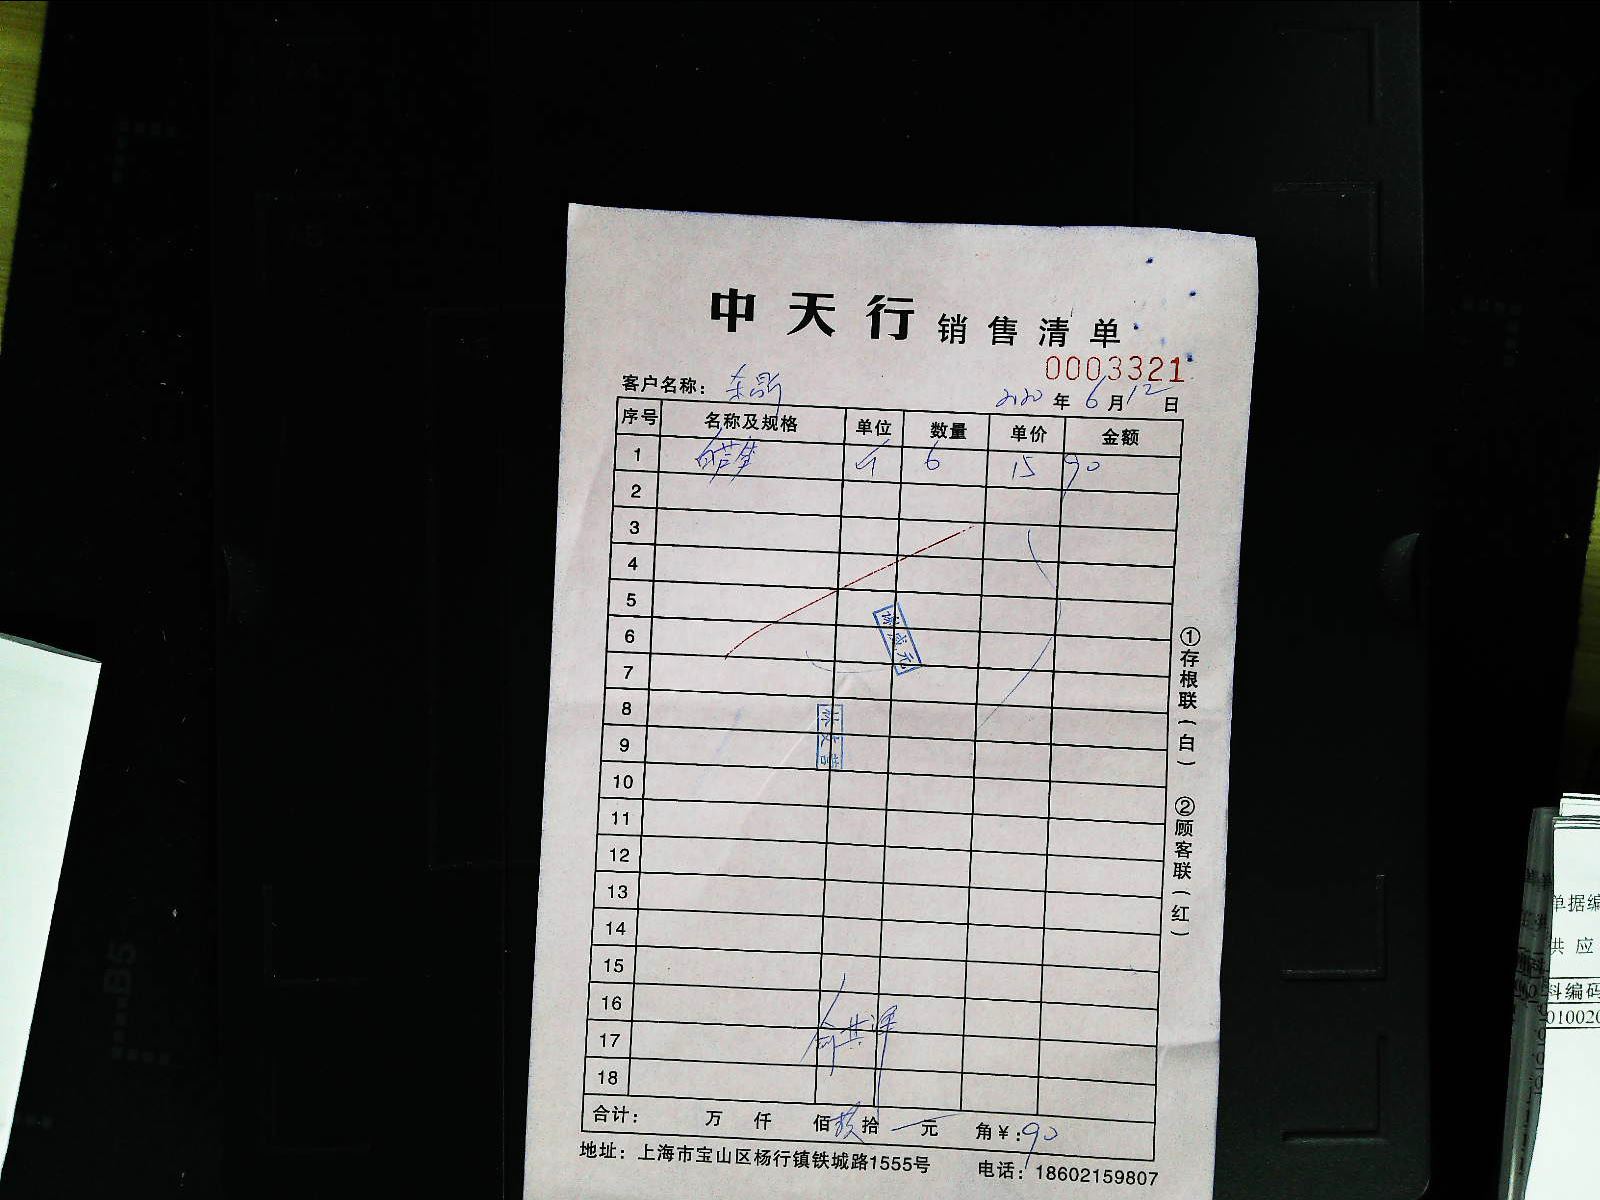 中天行 销售清单
0003321
客户名称: 东鼎 2020 年 6 月 12 日
序号 名称及规格 单位 数量 单价 金额
1 白芦笋 斤 6 15 90
2
3
4
5
6
7
8
9
10
11
12
13
14
15
16
17
18
合计: 万 仟 佰 玖 拾 元 角 ¥: 90
地址: 上海市宝山区杨行镇铁城路1555号 电话: 18602159807
①存根联(白) ②顾客联(红)
B5
单据编
供 应
科编码
01002